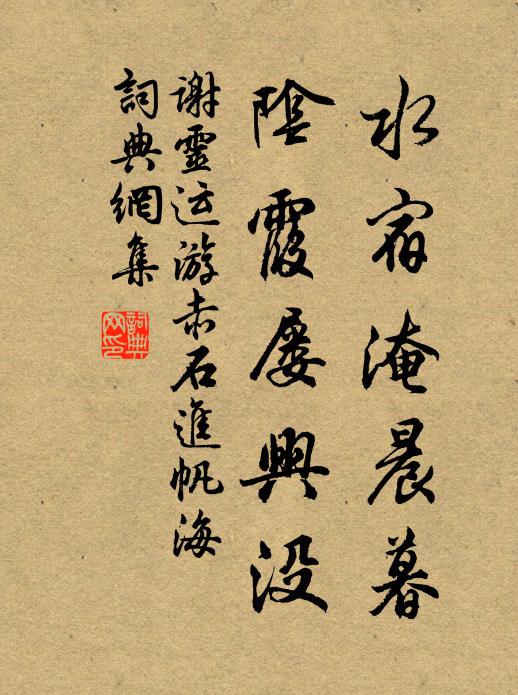 水宿淹晨暮
陰霞屡興没
谢靈运游赤石進帆海
詞典網集
詞典网印